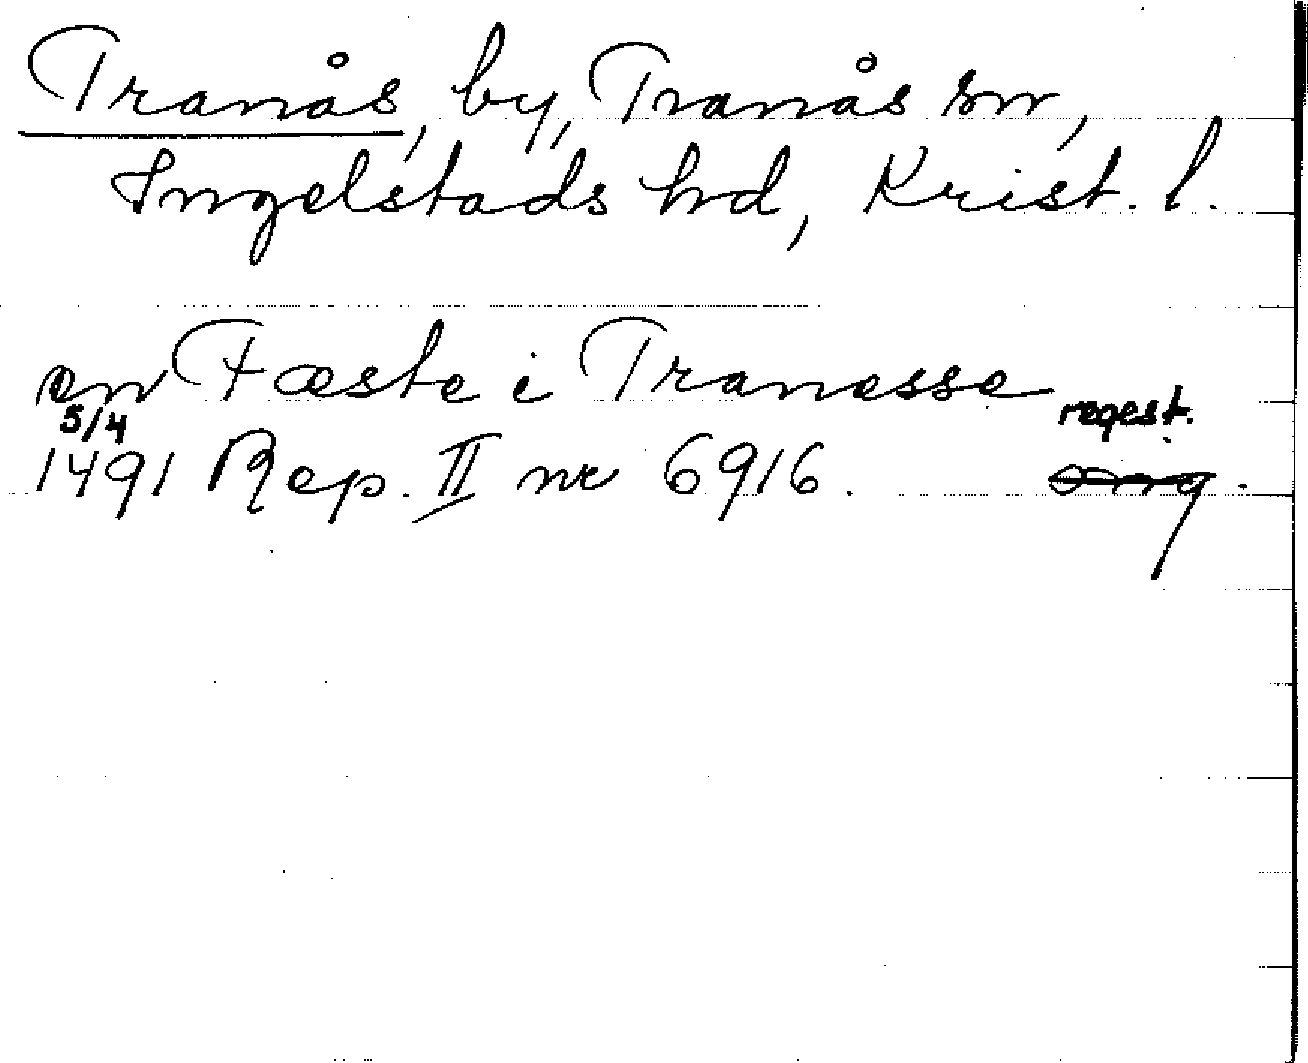 Tranås, by, Tranås sn,
Ingelstads hd, Krist. l.
en Fæste i Tranesse
5/4 regest.
1491 Rep. II nr 6916.